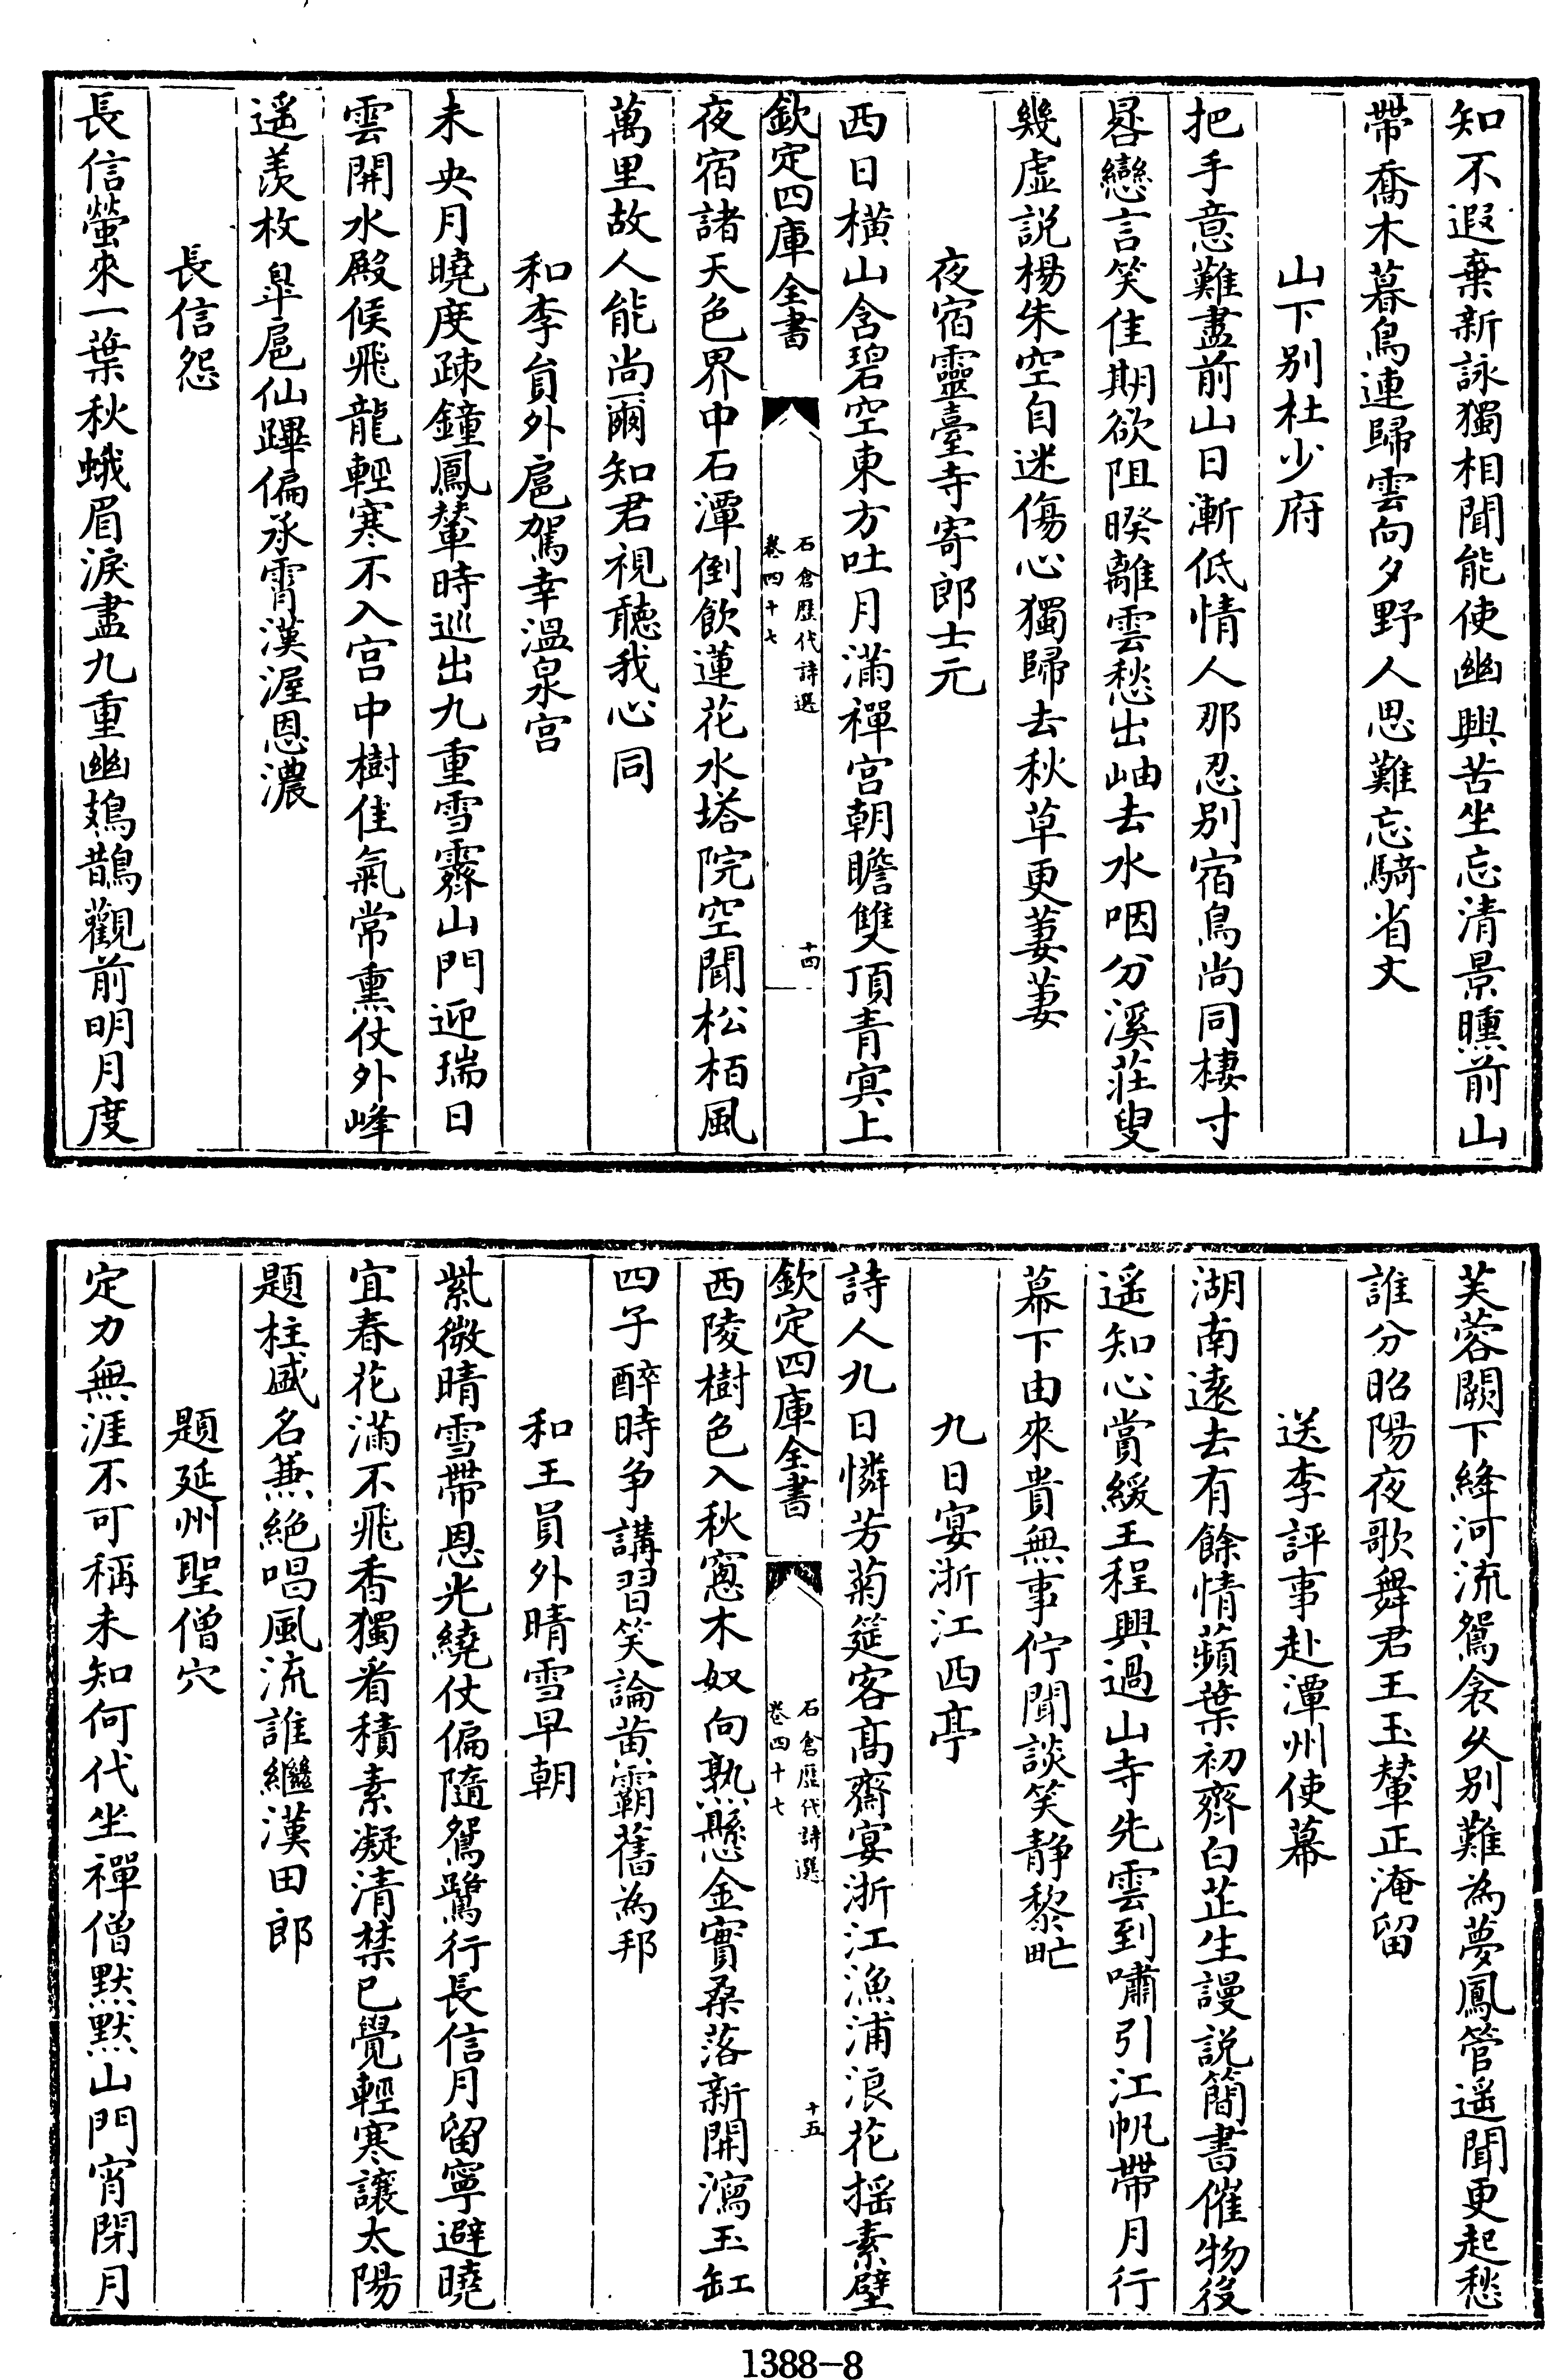 知不遐棄新詠獨相聞能使幽興苦坐忘清景曛前山
帶喬木暮鳥連歸雲向夕野人思難忘騎省文
山下别杜少府
把手意難盡前山日漸低情人那忍别宿鳥尚同棲寸
晷戀言笑佳期欲阻暌離雲愁出岫去水咽分溪莊叟
幾虚説楊朱空自迷傷心獨歸去秋草更萋萋
夜宿靈臺寺寄郎士元
西日横山含碧空東方吐月滿禪宫朝瞻雙頂青冥上
欽定四庫全書
石倉歴代詩選
卷四十七
十四
夜宿諸天色界中石潭倒飲蓮花水塔院空聞松栢風
萬里故人能尚爾知君視聽我心同
和李員外扈駕幸温泉宫
未央月曉度疎鐘鳳輦時巡出九重雪霽山門迎瑞日
雲開水殿候飛龍輕寒不入宫中樹佳氣常熏仗外峰
遥羨枚皐扈仙蹕偏承霄漢渥恩濃
長信怨
長信螢來一葉秋蛾眉淚盡九重幽鳷鵲觀前明月度
芙蓉闕下絳河流鴛衾久别難為夢鳳管遥聞更起愁
誰分昭陽夜歌舞君王玉輦正淹留
送李評事赴潭州使幕
湖南逺去有餘情蘋葉初齊白芷生謾説簡書催物役
遥知心賞緩王程興過山寺先雲到嘯引江帆帶月行
幕下由來貴無事佇聞談笑静黎甿
九日宴浙江西亭
詩人九日憐芳菊筵客髙齋宴浙江漁浦浪花揺素壁
欽定四庫全書
石倉歴代詩選
卷四十七
十五
西陵樹色入秋窻木奴向熟懸金實桑落新開瀉玉缸
四子醉時争講習笑論黄霸舊為邦
和王員外晴雪早朝
紫微晴雪帶恩光繞仗偏隨鴛鷺行長信月留寧避曉
宜春花滿不飛香獨看積素凝清禁已覺輕寒讓太陽
題柱盛名兼絶唱風流誰繼漢田郎
題延州聖僧穴
定力無涯不可稱未知何代坐禪僧默默山門宵閉月
1388-8